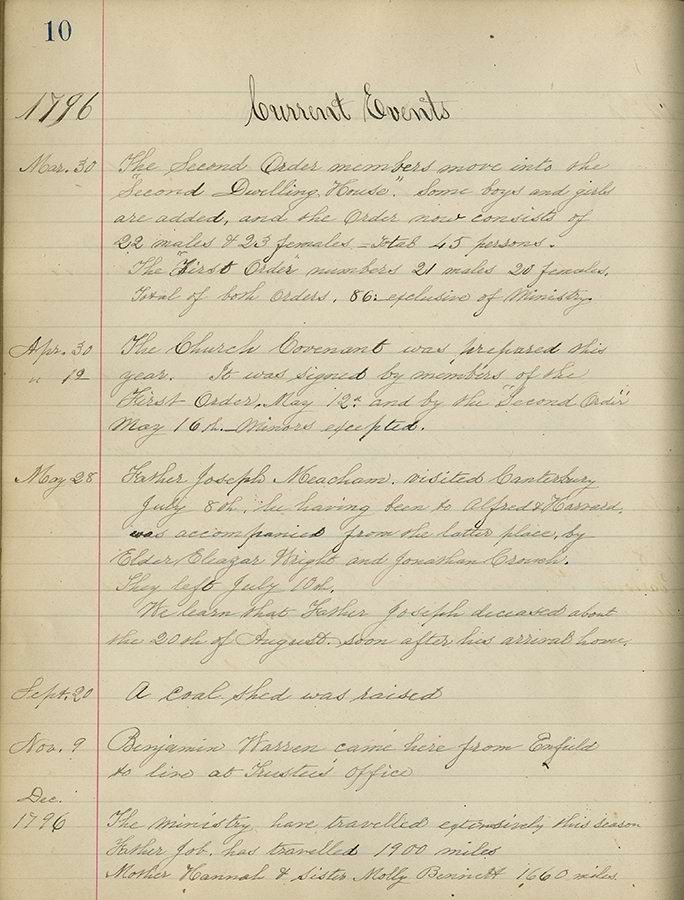 10
1796 Current Events
Mar. 30 The Second Order members move into the
"Second Dwelling House". Some boys and girls
are added, and the Order now consists of
22 males & 23 females = Total 45 persons.
The "First Order" numbers 21 males 20 females.
Total of both Orders, 86: exclusive of Ministry.
Apr. 30 The Church Covenant was prepared this
" 12 year. It was signed by members of the
First Order, May 12th and by the "Second Order"
May 16th. Minors excepted.
May 28 Father Joseph Meacham, visited Canterbury
July 8th, he having been to Alfred & Harvard,
was accompanied from the latter place, by
Elder Eleazar Wright and Jonathan Crouch.
They left July 10th.
We learn that Father Joseph deceased about
the 20th of August. soon after his arrival home.
Sept. 20 A coal shed was raised
Nov. 9 Benjamin Warren came here from Enfield
to live at Trustees' Office
Dec.
1796 The Ministry have travelled extensively this season
Father Job. has travelled 1900 miles
Mother Hannah & Sister Molly Bennett 1660 miles